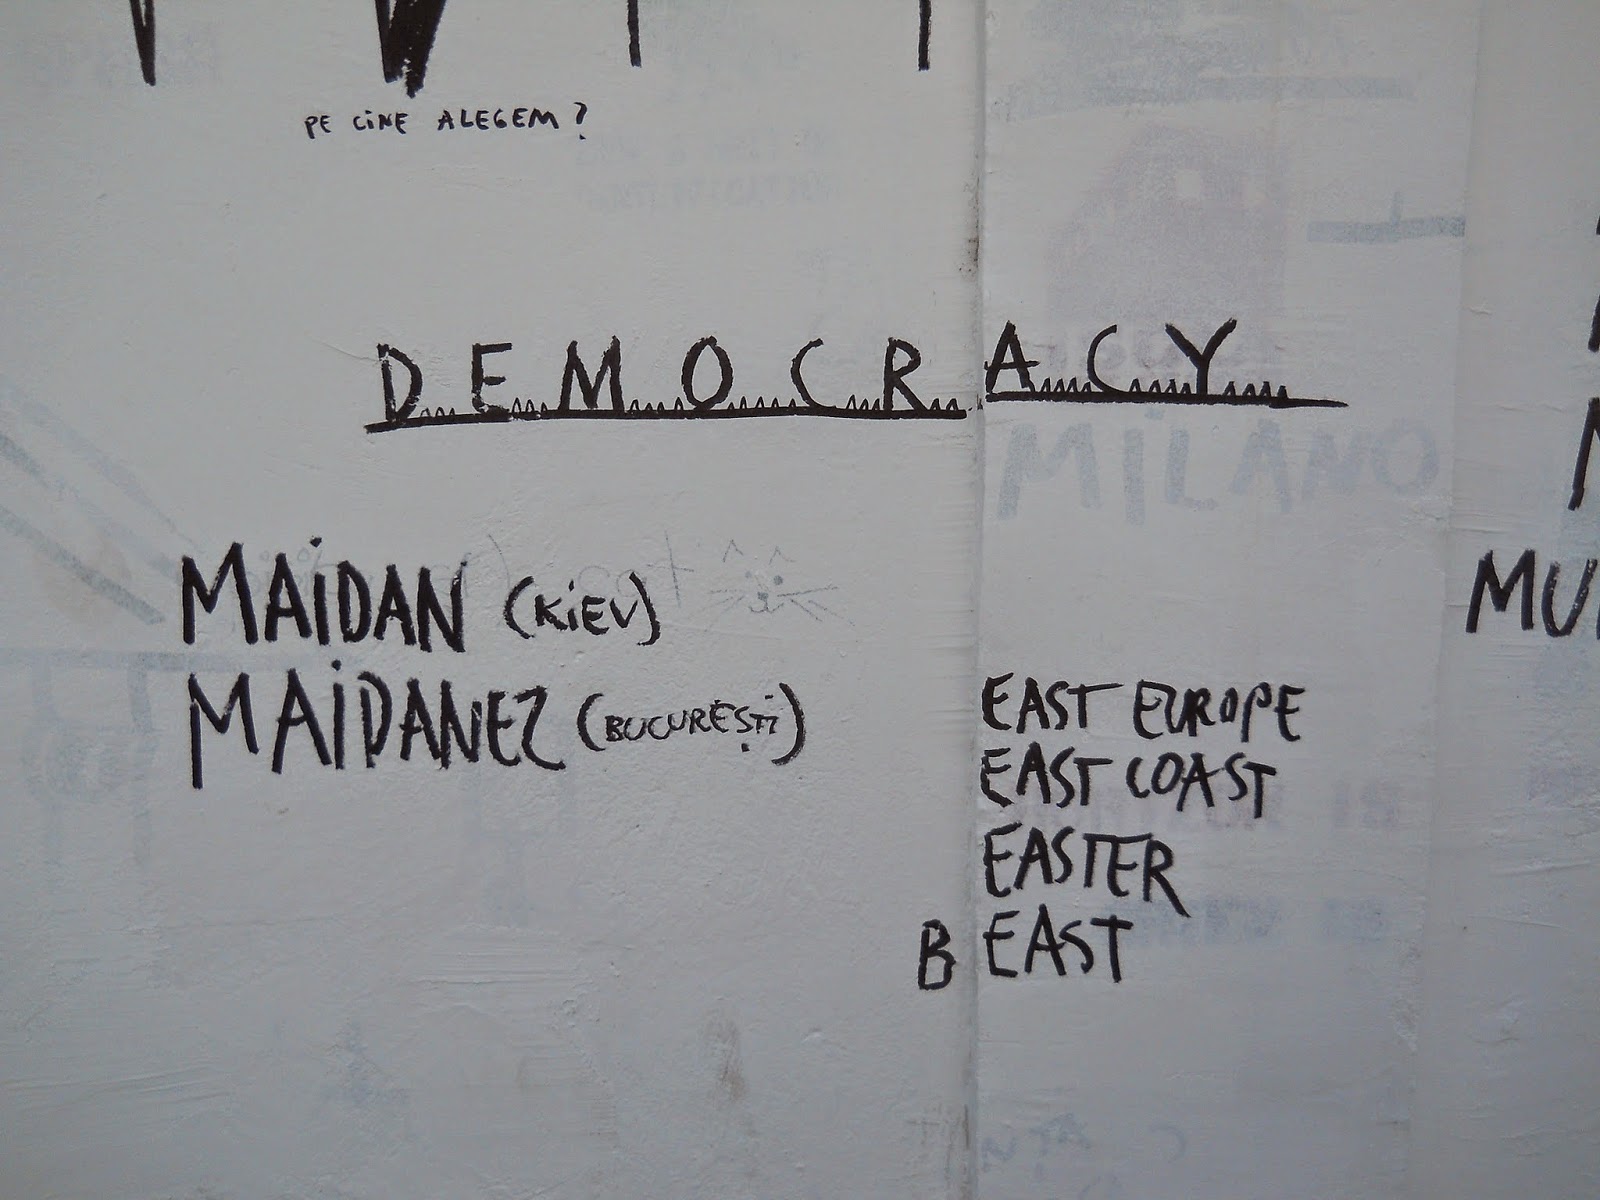 PE CINE ALEGEM?
DEMOCRACY
MILANO
MAIDAN (KIEV)
MAIDANEZ (BUCUREȘTI)
EAST EUROPE
EAST COAST
EASTER
BEAST
MU